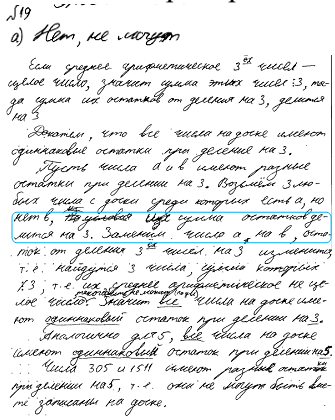 №19
а) Нет, не могут
Если среднее арифметическое 3ёх чисел –
целое число, значит сумма этих чисел ⋮3, то-
да сумма их остатков от деления на 3, делится
на 3
Докажем, что все числа на доске имеют
одинаковые остатки при делении на 3.
Пусть числа а и в имеют разные
остатки при делении на 3. Возьмём 3 лю-
бых числа с доски среди которых есть а, но
нет в, сумма остатков де-
лится на 3. Заменим число а на в, оста-
ток от деления 3ёх чисел на 3 изменится,
т.е. найдутся 3 числа, сумма которых
⋮̸3, т.е. их среднее арифметическое не це-
лое число. Значит все числа на доске име-
ют одинаковый остаток при делении на 3.
Аналогично для 5, все числа на доске
имеют одинаковый остаток при делении на 5.
Числа 305 и 1511 имеют разные остатки
при делении на 5, т.е. они не могут быть вмес-
те записаны на доске.